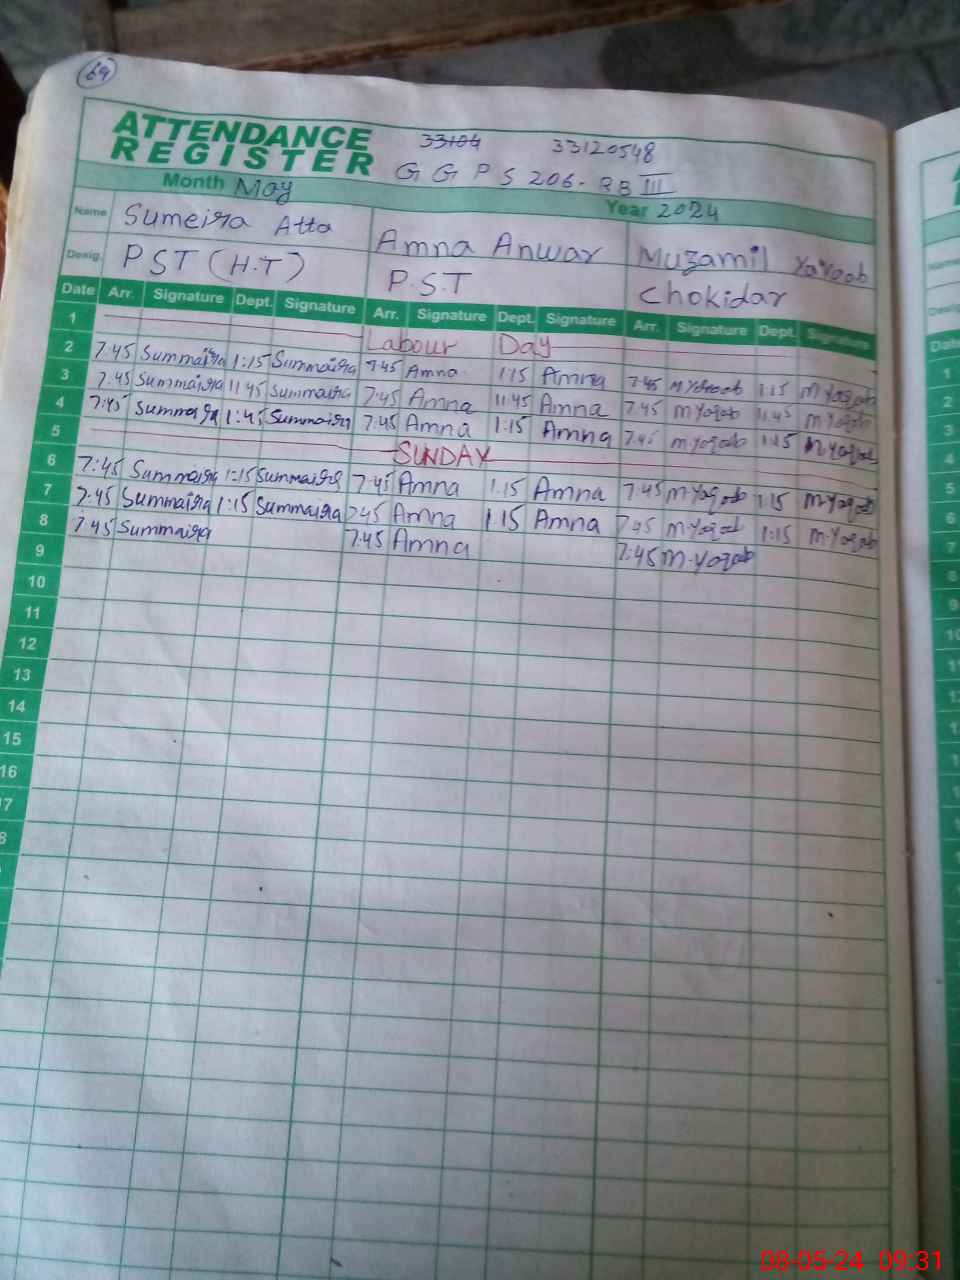 69
ATTENDANCE 33104 33120548
REGISTER G G P S 206-RB III
Month May Year 2024
Name Sumeira Atta Amna Anwar Muzamil Yaqoob
Desig. PST (H.T) P.S.T Chokidar
Date Arr. Signature Dept. Signature Arr. Signature Dept. Signature Arr. Signature Dept. Signature
1 Labour Day
2 7:45 Summaira 1:15 Summaira 7:45 Amna 1:15 Amna 7:45 M Yaqoob 1:15 m Yaqoob
3 7:45 Summaira 11:45 Summaira 7:45 Amna 11:45 Amna 7:45 m Yaqoob 11:45 m Yaqoob
4 7:45 Summaira 1:45 Summaira 7:45 Amna 1:15 Amna 7:45 m.Yaqoob 1:15 m Yaqoob
5 SUNDAY
6 7:45 Summaira 1:15 Summaira 7:45 Amna 1:15 Amna 7:45 m Yaqoob 1:15 m Yaqoob
7 7:45 Summaira 1:15 Summaira 7:45 Amna 1:15 Amna 7:45 m.Yaqoob 1:15 m.Yaqoob
8 7:45 Summaira 7:45 Amna 7:45 m.Yaqoob
9
10
11
12
13
14
15
16
7
8
Date
1
2
3
4
5
6
7
8
9
10
08-05-24 09:31